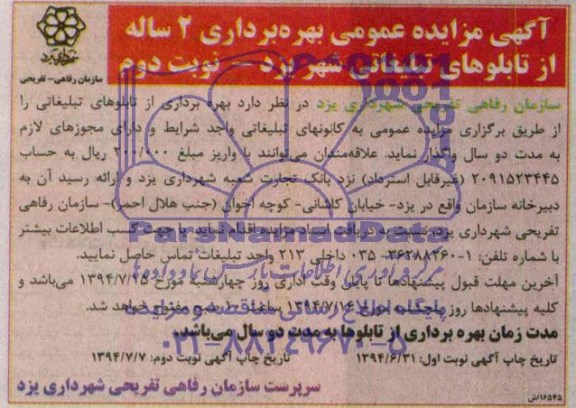 آگهی مزایده عمومی بهره‌برداری ۲ ساله
از تابلوهای تبلیغاتی شهر یزد – نوبت دوم
سازمان رفاهی- تفریحی
سازمان رفاهی تفریحی شهرداری یزد در نظر دارد بهره برداری از تابلوهای تبلیغاتی را
از طریق برگزاری مزایده عمومی به کانونهای تبلیغاتی واجد شرایط و دارای مجوزهای لازم
به مدت دو سال واگذار نماید. علاقه‌مندان می‌توانند با واریز مبلغ ۲۰۰/۰۰۰ ریال به حساب
۲۰۹۱۵۲۳۴۴۵ (غیرقابل استرداد) نزد بانک تجارت شعبه شهرداری یزد و ارائه رسید آن به
دبیرخانه سازمان واقع در یزد- خیابان کاشانی- کوچه اخوان (جنب هلال احمر)- سازمان رفاهی
تفریحی شهرداری یزد نسبت به دریافت اسناد مزایده اقدام نمایند. یا جهت کسب اطلاعات بیشتر
با شماره تلفن: ۱-۳۶۲۸۸۳۶۰-۰۳۵ داخلی ۲۱۳ واحد تبلیغات تماس حاصل نمایید.
آخرین مهلت قبول پیشنهادها تا پایان وقت اداری روز چهارشنبه مورخ ۱۳۹۴/۷/۱۵ می‌باشد و
کلیه پیشنهادها روز پنجشنبه مورخ ۱۳۹۴/۷/۱۶ ساعت ۱۰ صبح مفتوح خواهد شد.
مدت زمان بهره برداری از تابلوها به مدت دو سال می‌باشد.
تاریخ چاپ آگهی نوبت اول: ۱۳۹۴/۶/۳۱ تاریخ چاپ آگهی نوبت دوم: ۱۳۹۴/۷/۷
سرپرست سازمان رفاهی تفریحی شهرداری یزد
۱۶۵۴۵/ش
ParsNamadData
مرکز فرآوری اطلاعات پارس نماد داده‌ها
پایگاه اطلاع رسانی مناقصه و مزایده
۰۲۱-۸۸۳۴۹۶۷۰-۵